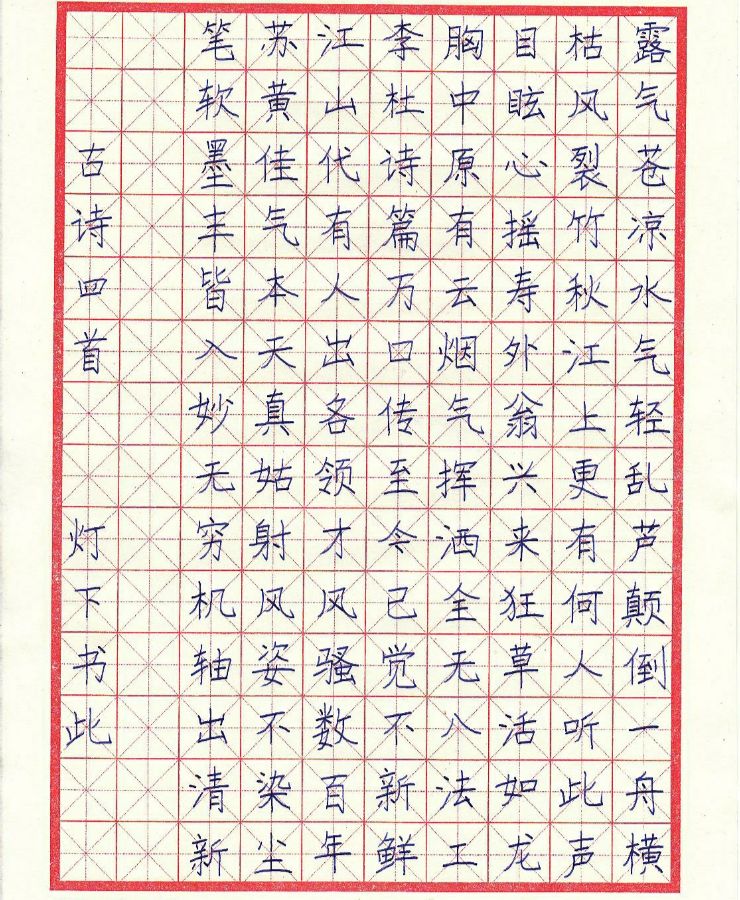 露气苍凉水气轻乱芦颠倒一舟横
枯风裂竹秋江上更有何人听此声
目眩心摇寿外翁兴来狂草活如龙
胸中原有云烟气挥洒全无八法工
李杜诗篇万口传至今已觉不新鲜
江山代有人出各领才风骚数百年
苏黄佳气本天真姑射风姿不染尘
笔软墨丰皆入妙无穷机轴出清新
古诗四首 灯下书此